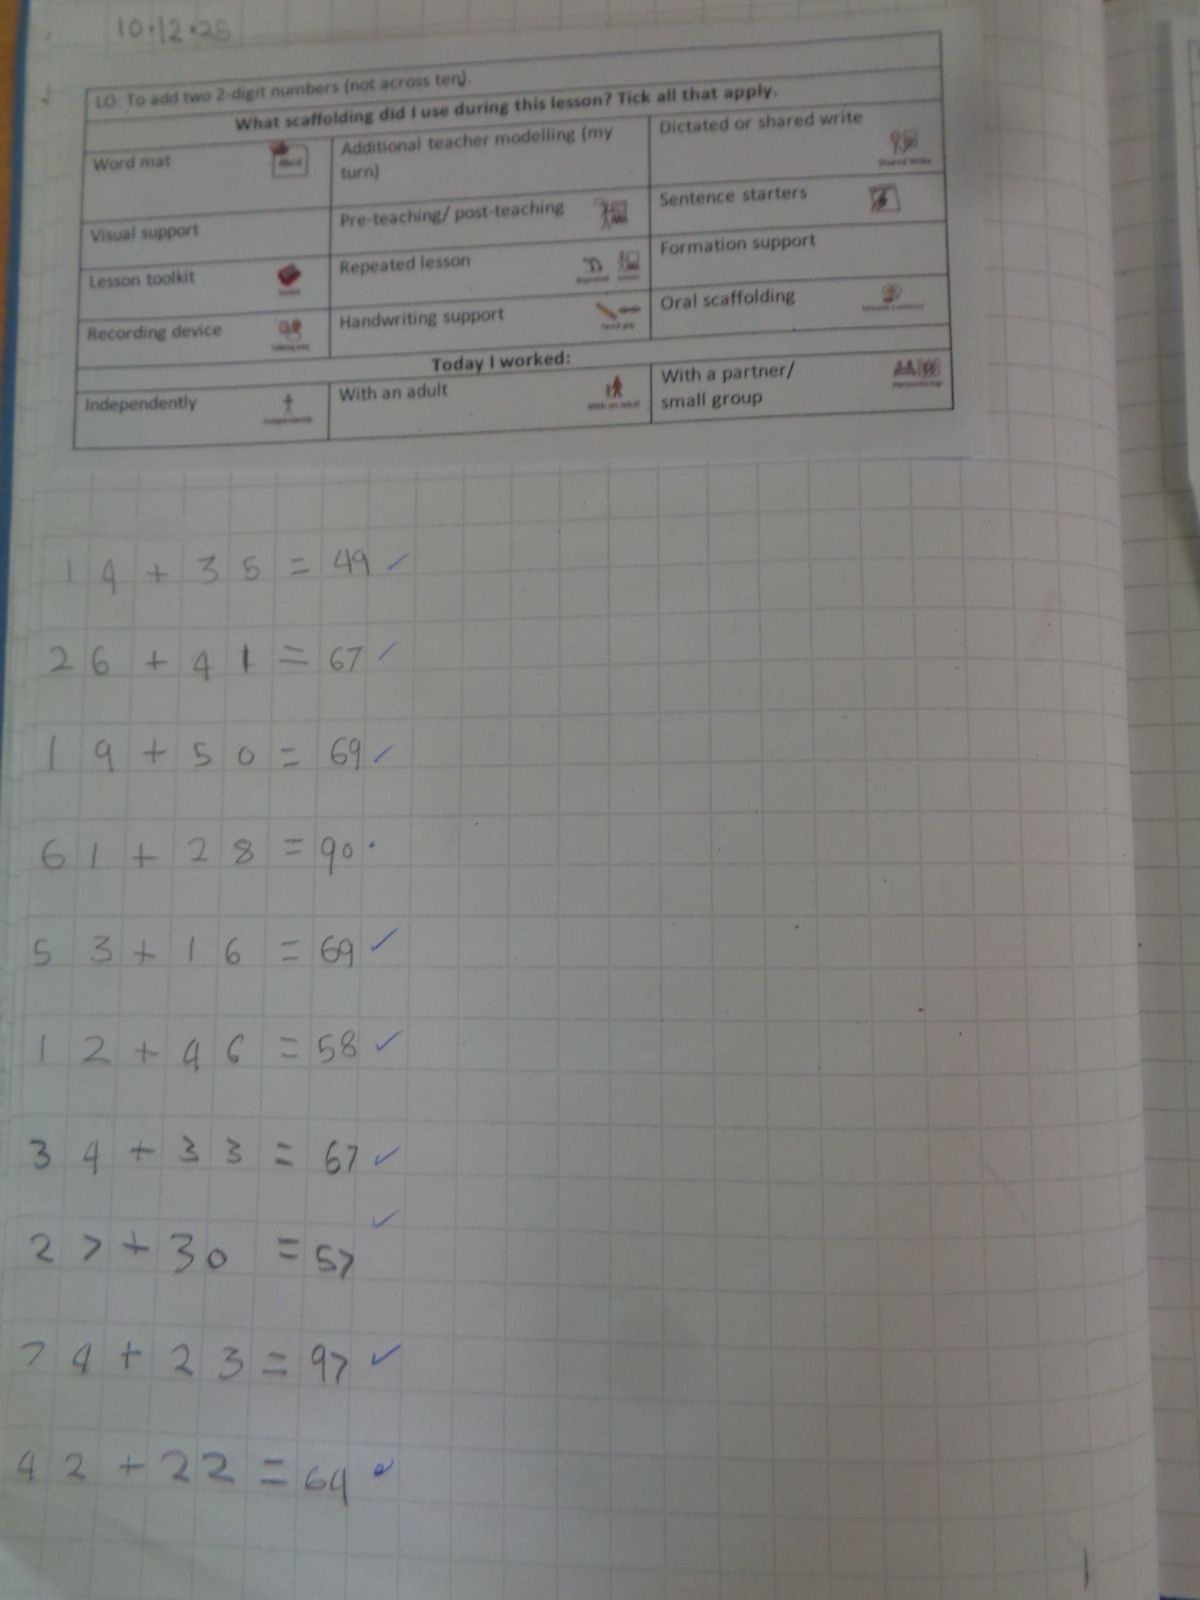 10.12.25
LO: To add two 2-digit numbers (not across ten).
What scaffolding did I use during this lesson? Tick all that apply.
Word mat
Additional teacher modelling (my turn)
Dictated or shared write
Shared Write
Visual support
Pre-teaching/ post-teaching
Sentence starters
Lesson toolkit
Repeated lesson
Formation support
Recording device
Handwriting support
Oral scaffolding
Today I worked:
Independently
Independently
With an adult
With an adult
With a partner/
small group
14 + 35 = 49 ✓
26 + 41 = 67 ✓
19 + 50 = 69 ✓
61 + 28 = 90 •
53 + 16 = 69 ✓
12 + 46 = 58 ✓
34 + 33 = 67 ✓
27 + 30 = 57 ✓
74 + 23 = 97 ✓
42 + 22 = 64